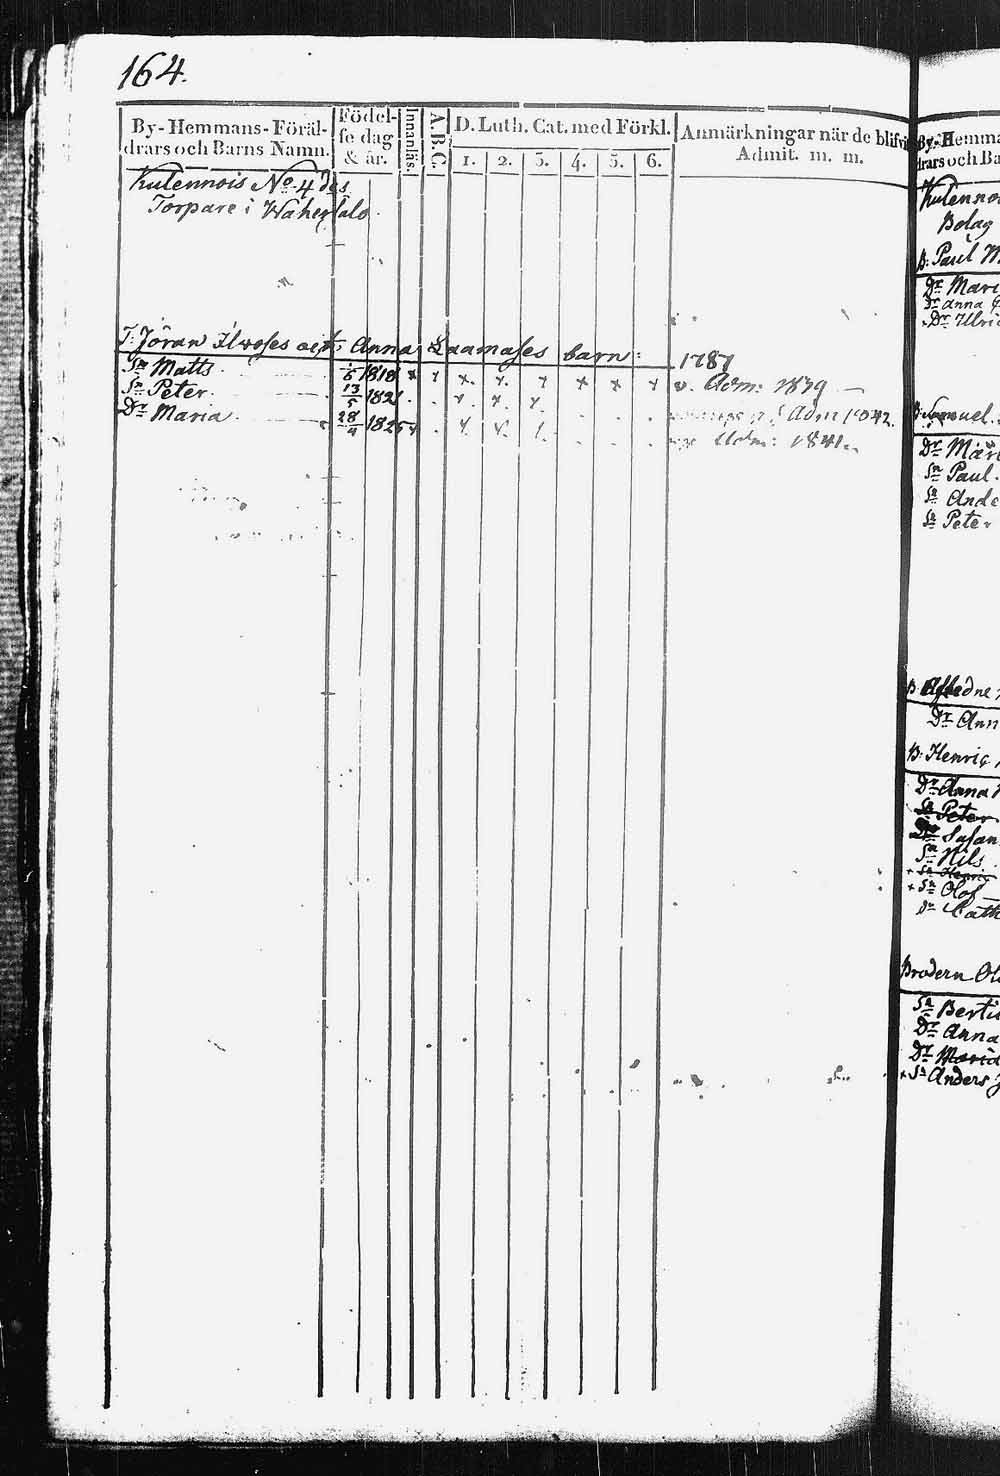 164.
By-Hemmans-Föräl-
drars och Barns Namn.
Födel-
se dag
& år.
Innanläs.
A.B.C.
D. Luth. Cat. med Förkl.
1. 2. 3. 4. 5. 6.
Anmärkningar när de blifvi
Admit. m. m.
Kulennois No 4 des
Torpare i
T: Jöran Ilwoses och Anna Laamases barn: 1787
Sn Matts 1/6 1818 x x x x x x x x v. Adm: 1839
Sn Peter 13/5 1821 x x x Adm 1842.
Dr Maria 28/4 1825 x x x Adm: 1841.
By-Hemma
drars och Ba
Kulenno
Bolag
B: Paul
Dr Mari
Dr Anna
Dr Ulric
B: Samuel
Dr Mari
Sn Paul
Sn Ande
Sn Peter
B: Afledne
Dr Ann
B: Henric
Dr Anna
Sn Peter
Dr Susan
Sn Nils
Sn Henric
Sn Olof
Dr Cath
Brodern Ol
Sn Berti
Dr Anna
Dr Maria
Sn Anders